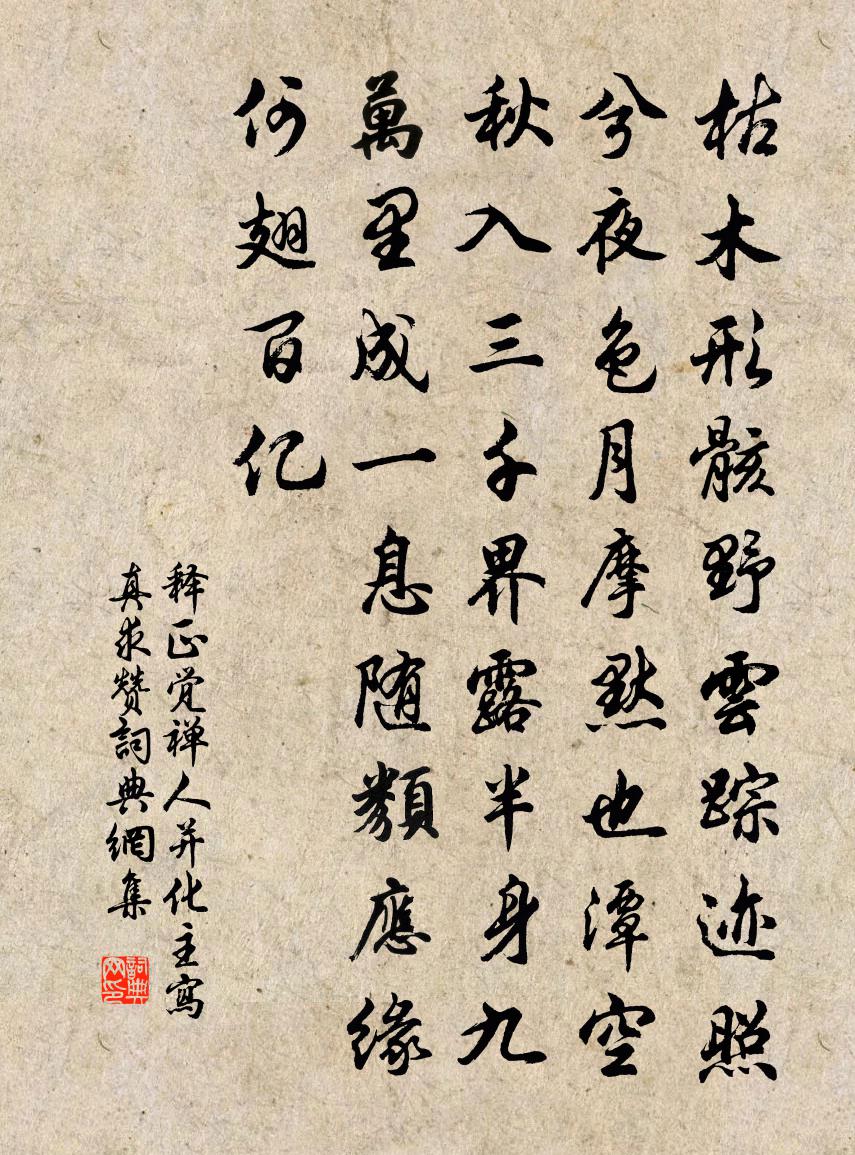 枯木形骸野雲踪迹照
兮夜色月摩默也潭空
秋入三千界露半身九
萬里成一息随類應緣
何翅百亿
释正觉禅人并化主寫
真求赞詞典網集
詞典网印